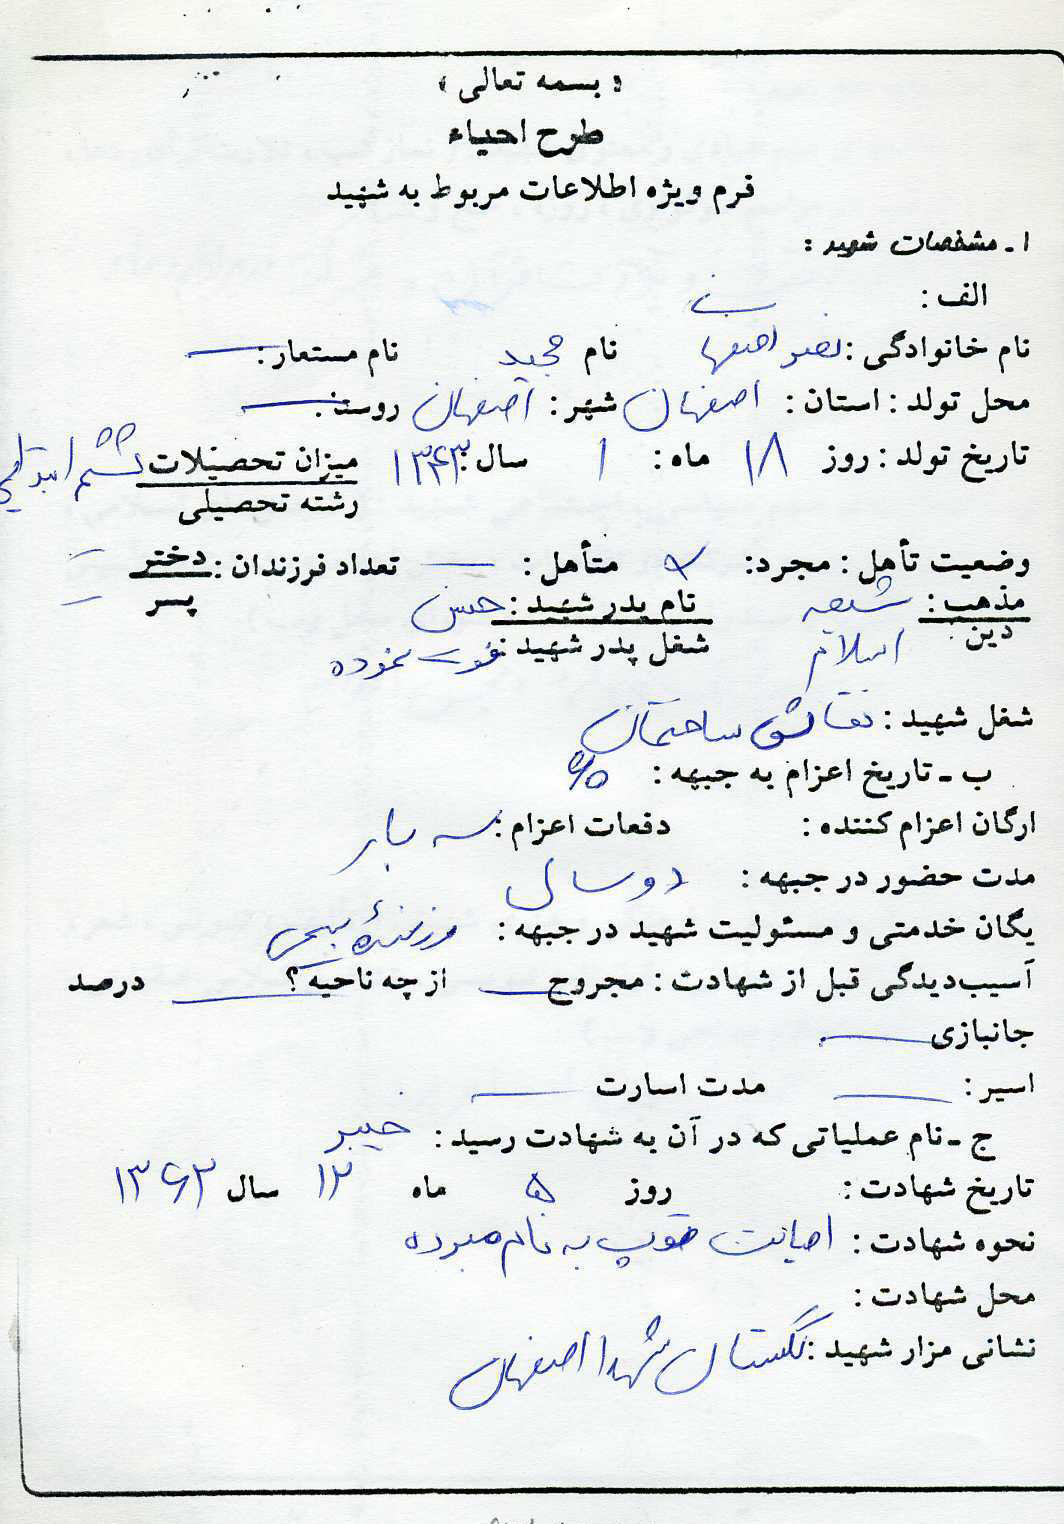 « بسمه تعالی »
طرح احیاء
فرم ویژه اطلاعات مربوط به شهید
۱ـ مشخصات شهید :
الف :
نام خانوادگی : نصر اصفهانی نام مجید نام مستعار : ـــ
محل تولد : استان : اصفهان شهر : اصفهان روستا : ـــ
تاریخ تولد : روز ۱۸ ماه : ۱ سال : ۱۳۴۳ میزان تحصیلات ششم ابتدائی
رشته تحصیلی
وضعیت تأهل : مجرد : متأهل : ـــ تعداد فرزندان : دختر ـــ
پسر ـــ
مذهب : شیعه نام پدر شهید : حسن
دین : اسلام شغل پدر شهید : فوت نموده
شغل شهید : نقاش ساختمان
ب ـ تاریخ اعزام به جبهه :
ارگان اعزام کننده : دفعات اعزام : سه بار
مدت حضور در جبهه : دو سال
یگان خدمتی و مسئولیت شهید در جبهه : رزمندهٔ بسیجی
آسیب‌دیدگی قبل از شهادت : مجروح ـــ از چه ناحیه ؟ ـــ درصد
جانبازی ـــ
اسیر : ـــ مدت اسارت ـــ
ج ـ نام عملیاتی که در آن به شهادت رسید : خیبر
تاریخ شهادت : روز ۵ ماه ۱۲ سال ۱۳۶۲
نحوه شهادت : اصابت توپ به نامبرده
محل شهادت :
نشانی مزار شهید : گلستان شهدا اصفهان